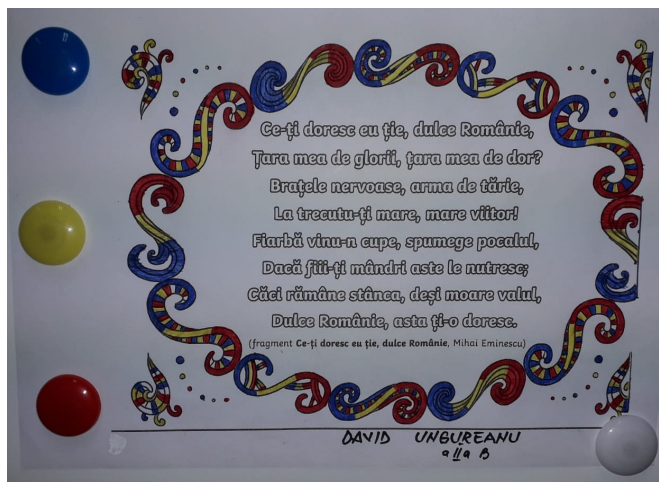 Ce-ți doresc eu ție, dulce Românie,
Țara mea de glorii, țara mea de dor?
Brațele nervoase, arma de tărie,
La trecutu-ți mare, mare viitor!
Fiarbă vinu-n cupe, spumege pocalul,
Dacă fiii-ți mândri aste le nutresc;
Căci rămâne stânca, deși moare valul,
Dulce Românie, asta ți-o doresc.
(fragment Ce-ți doresc eu ție, dulce Românie, Mihai Eminescu)
DAVID UNGUREANU
a II a B